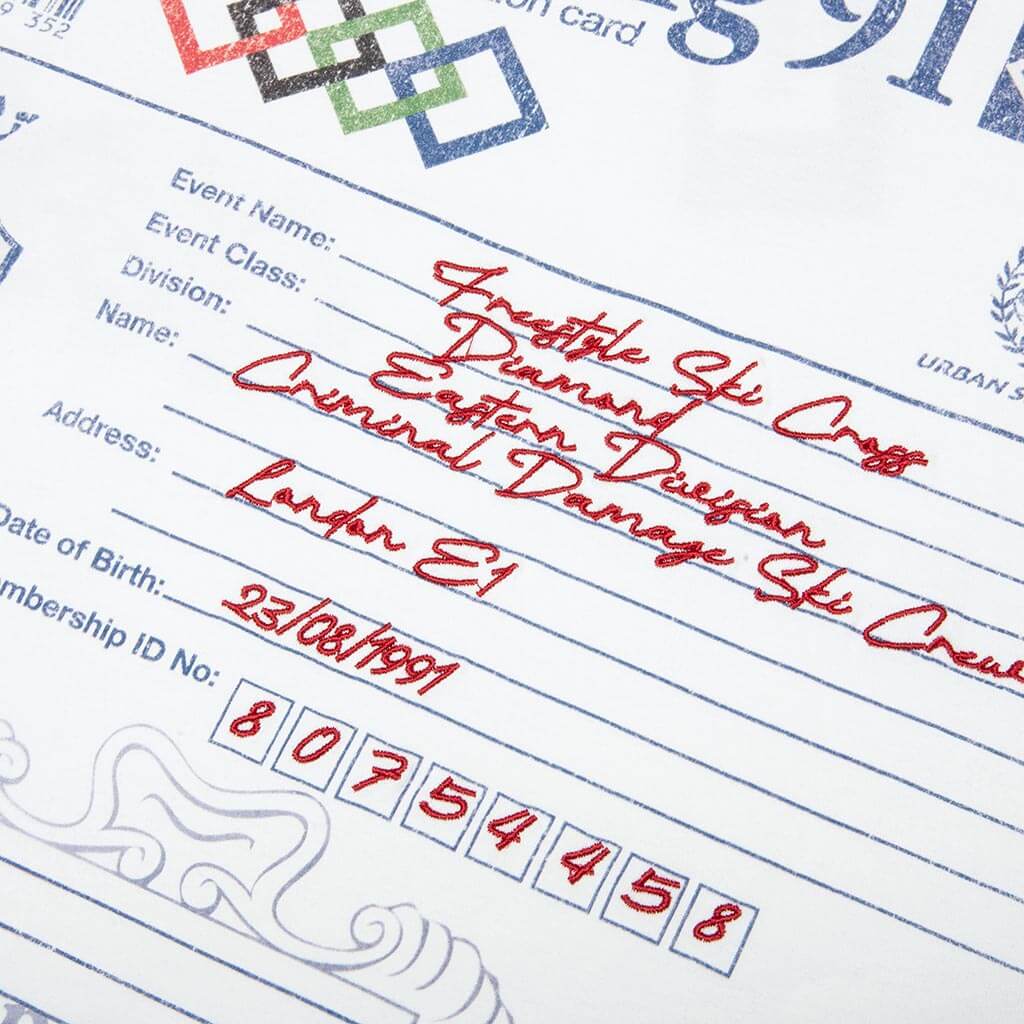 9 352
ion card
g91
Event Name: Freestyle Ski Cross
Event Class: Diamond
Division: Eastern Division
Name: Criminal Damage Ski Crew
Address: London E1
URBAN S
Date of Birth: 23/08/1991
embership ID No: 8 0 7 5 4 4 5 8